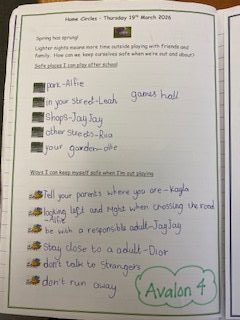 Home Circles – Thursday 19th March 2026
Spring has sprung!
Lighter nights means more time outside playing with friends and
family. How can we keep ourselves safe when we're out and about?
Safe places I can play after school
park - Alfie
in your street - Leah
games hall
Shops - JayJay
other streets - Rua
your garden - ollie
Ways I can keep myself safe when I'm out playing
Tell your parents where you are - Kayla
looking left and right when crossing the road
- Alfie
be with a responsible adult - JayJay
Stay close to a adult - Dior
don't talk to strangers
don't run away
Avalon 4